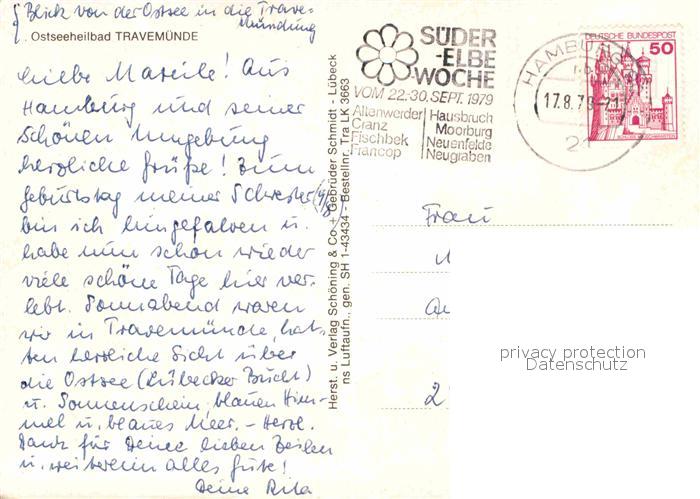 Blick von der Ostsee in die Trave-
mündung
Ostseeheilbad TRAVEMÜNDE
Liebe Mareile! Aus
Hamburg und seiner
schönen Umgebung
herzliche Grüße! Zum
Geburtstag meiner Schwester
bin ich hingefahren u.
habe nun schon wieder
viele schöne Tage hier ver-
lebt. Sonnabend waren
wir in Travemünde, hat-
ten herrliche Sicht über
die Ostsee (Lübecker Bucht)
u. Sonnenschein, blauen Him-
mel u. blaues Meer. - Herzl.
Dank für Deine lieben Zeilen
u. weiterhin alles Gute!
Deine Rita
Herst. u. Verlag Schöning & Co + Gebrüder Schmidt - Lübeck
ns Luftaufn., gen. SH 1-43434 - Bestellnr. Tra LK 3663
SÜDER
-ELBE
WOCHE
VOM 22.-30. SEPT. 1979
Altenwerder
Cranz
Fischbek
Francop
Hausbruch
Moorburg
Neuenfelde
Neugraben
HAMBURG
17.8.79-21
21
DEUTSCHE BUNDESPOST
50
Frau
2
privacy protection
Datenschutz